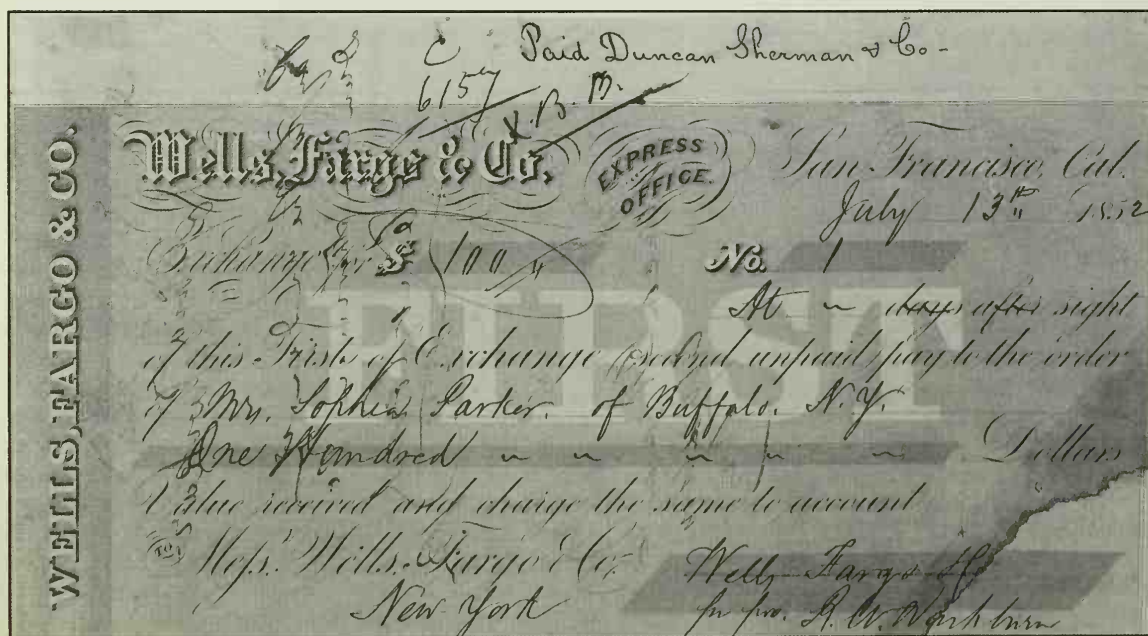 Paid Duncan Sherman & Co -
C
6157
Wells, Fargo & Co. EXPRESS OFFICE. San Francisco, Cal.
July 13th 1852
Exchange for $ 100 No. 1
At ~ days after sight
of this First of Exchange (second unpaid) pay to the order
of Mrs. Sophia Parker. of Buffalo. N.Y.
One Hundred ~ ~ ~ ~ ~ Dollars
Value received and charge the same to account
TO Mess. Wells, Fargo & Co. Wells Fargo & Co
New York pr pro. R. W. Washburn
WELLS, FARGO & CO.
FIRST